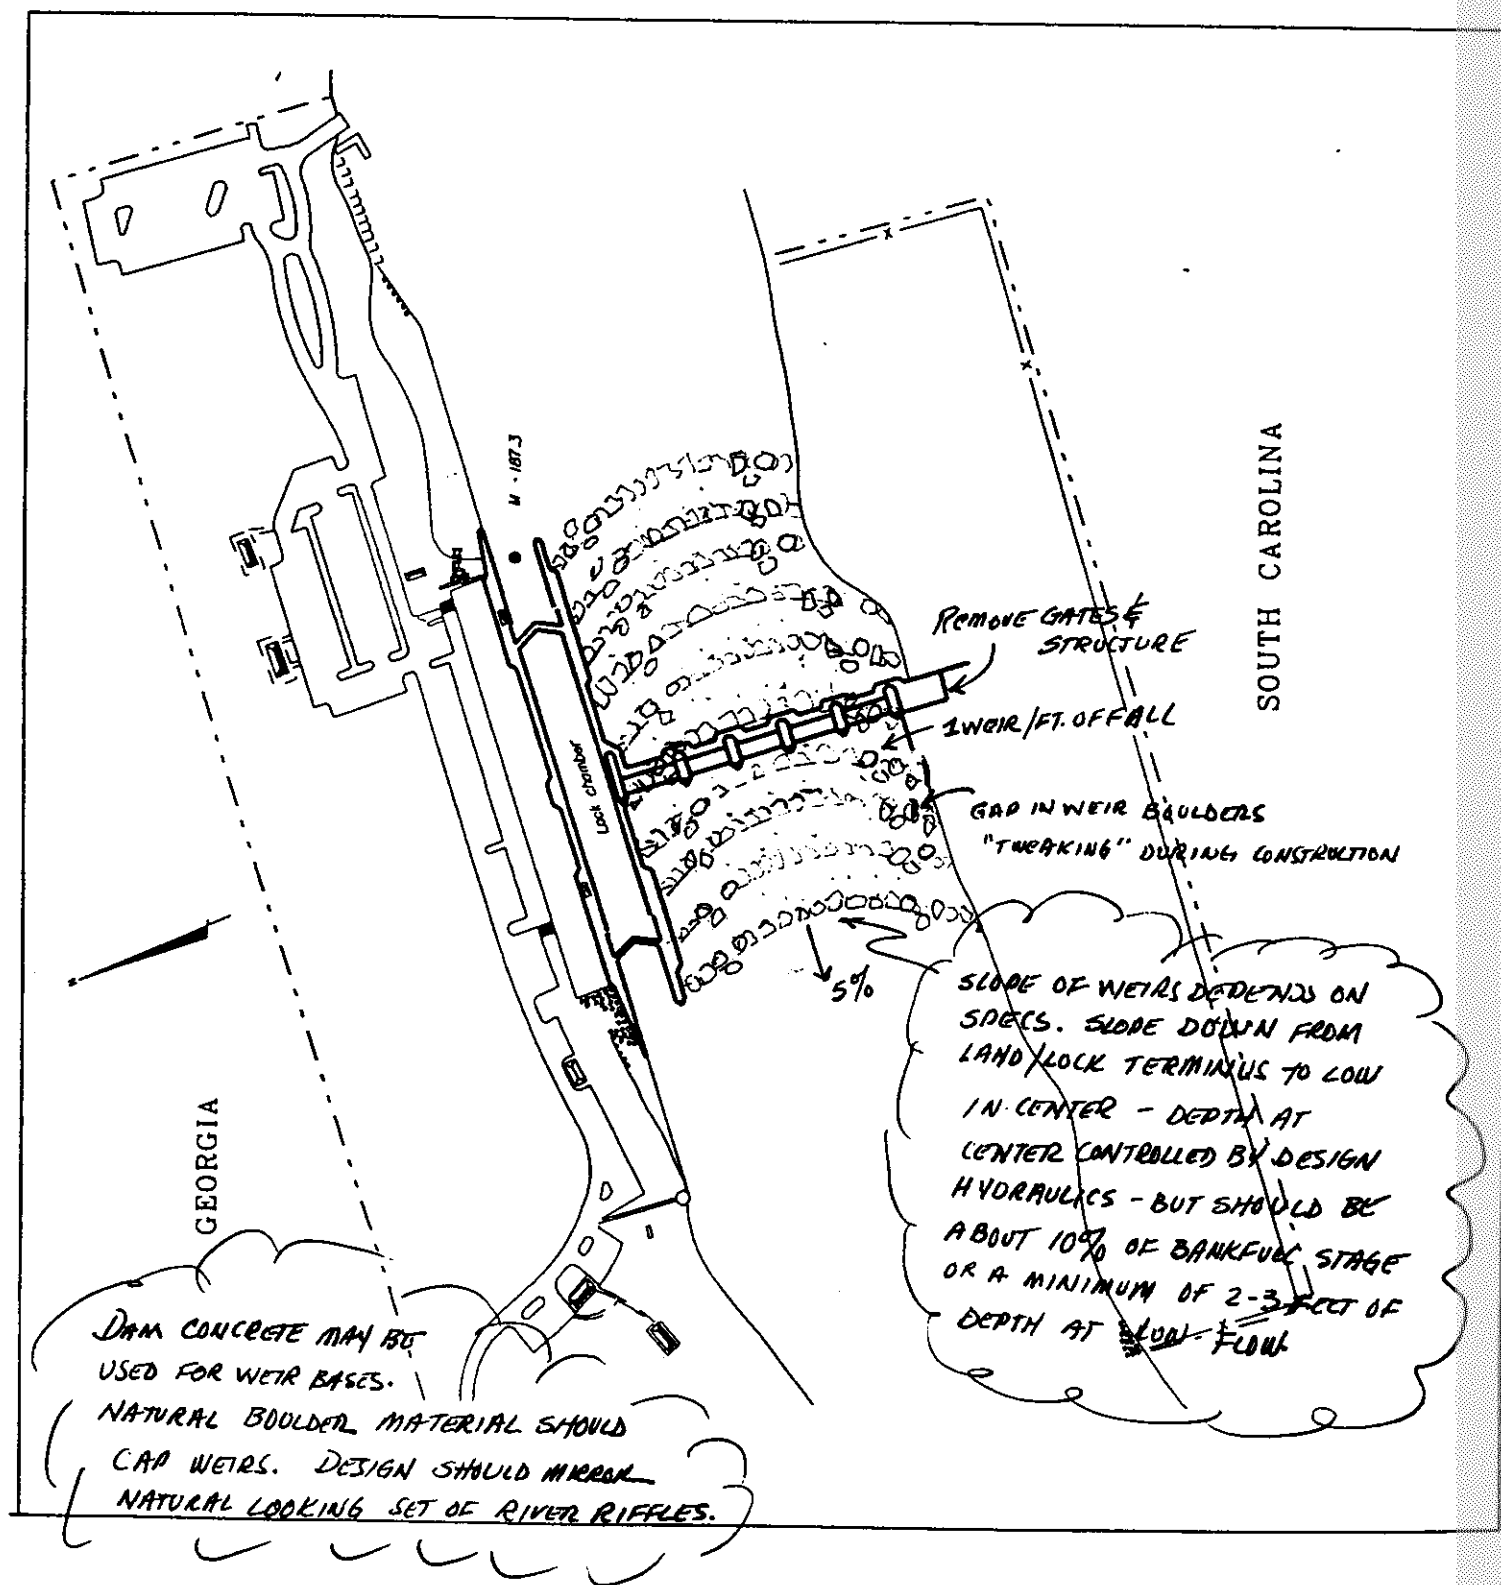 M - 187.3
SOUTH CAROLINA
REMOVE GATES &
STRUCTURE
1 WEIR/FT. OF FALL
Lock chamber
GAP IN WEIR BOULDERS
"TWEAKING" DURING CONSTRUCTION
5%
SLOPE OF WEIRS DEPENDS ON
SPECS. SLOPE DOWN FROM
LAND/LOCK TERMINUS TO LOW
IN CENTER - DEPTH AT
CENTER CONTROLLED BY DESIGN
HYDRAULICS - BUT SHOULD BE
ABOUT 10% OF BANKFULL STAGE
OR A MINIMUM OF 2-3 FEET OF
DEPTH AT LOW FLOW
GEORGIA
DAM CONCRETE MAY BE
USED FOR WEIR BASES.
NATURAL BOULDER MATERIAL SHOULD
CAP WEIRS. DESIGN SHOULD MIRROR
NATURAL LOOKING SET OF RIVER RIFFLES.